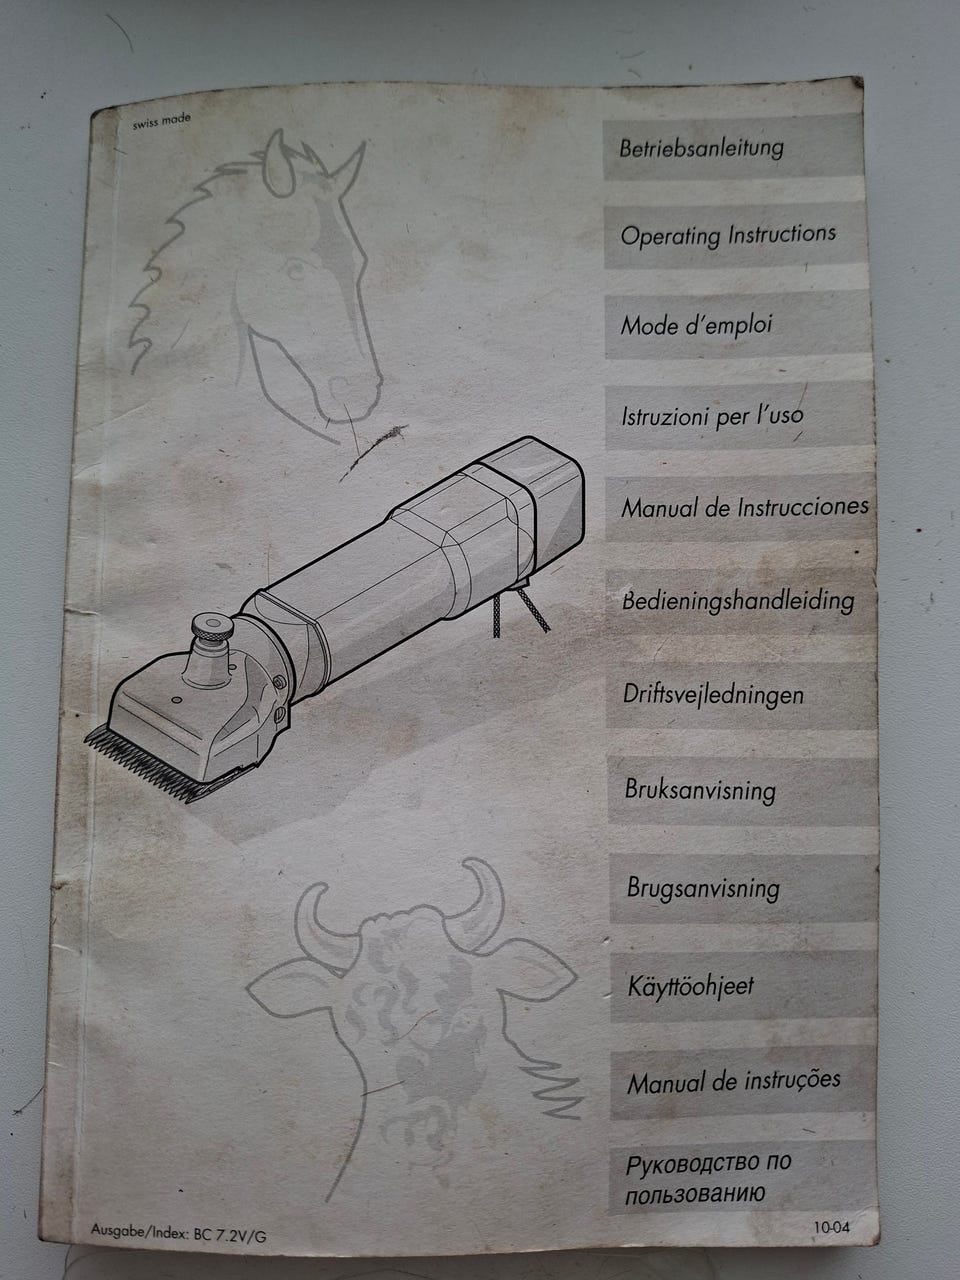 swiss made
Betriebsanleitung
Operating Instructions
Mode d'emploi
Istruzioni per l'uso
Manual de Instrucciones
Bedieningshandleiding
Driftsvejledningen
Bruksanvisning
Brugsanvisning
Käyttöohjeet
Manual de instruções
Руководство по
пользованию
Ausgabe/Index: BC 7.2V/G
10-04